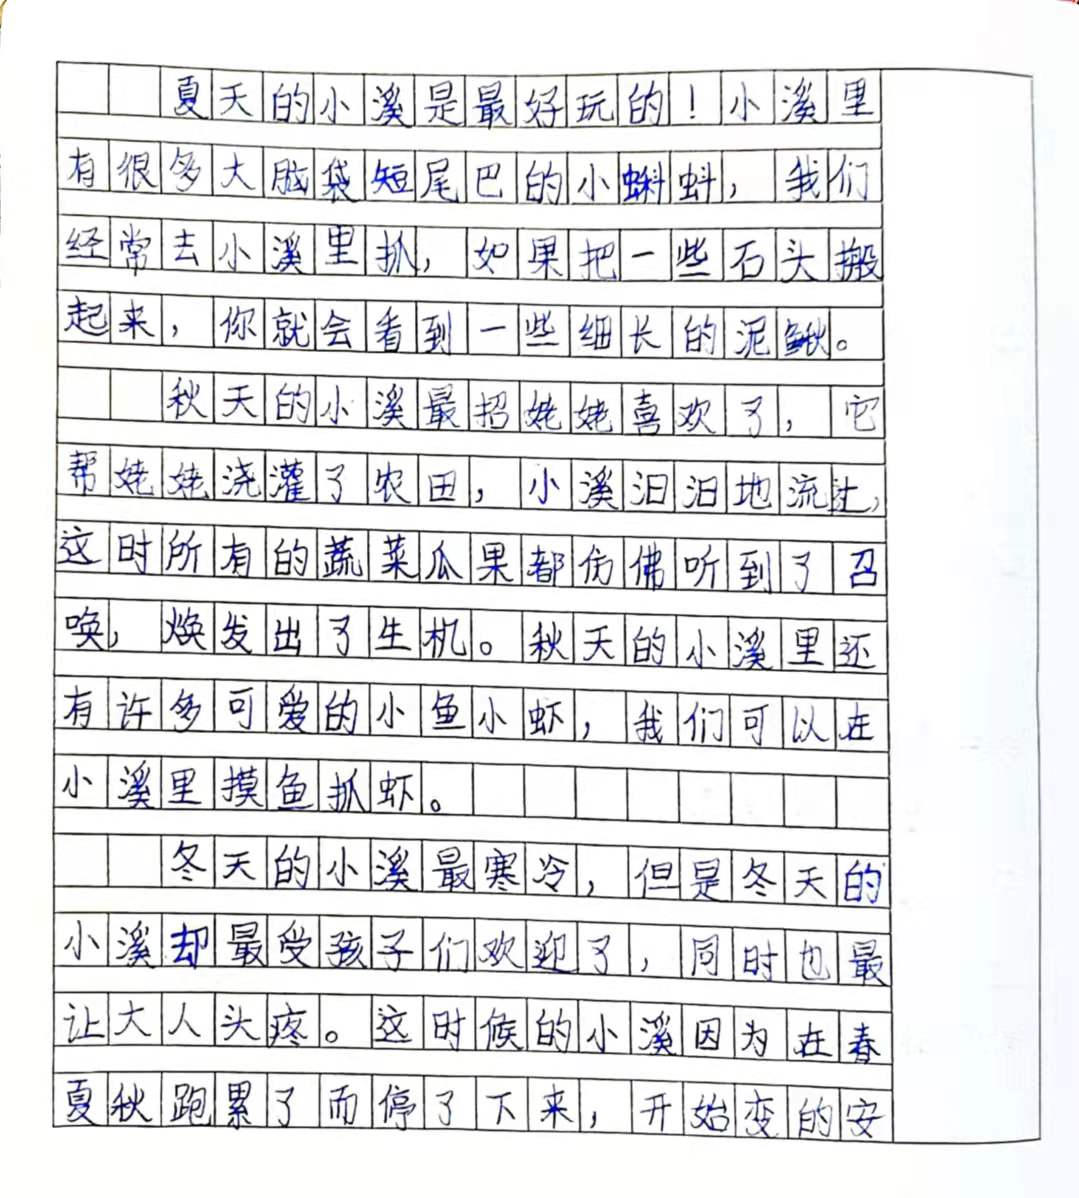 夏天的小溪是最好玩的！小溪里
有很多大脑袋短尾巴的小蝌蚪，我们
经常去小溪里抓，如果把一些石头搬
起来，你就会看到一些细长的泥鳅。
秋天的小溪最招姥姥喜欢了，它
帮姥姥浇灌了农田，小溪汩汩地流过，
这时所有的蔬菜瓜果都仿佛听到了召
唤，焕发出了生机。秋天的小溪里还
有许多可爱的小鱼小虾，我们可以在
小溪里摸鱼抓虾。
冬天的小溪最寒冷，但是冬天的
小溪却最受孩子们欢迎了，同时也最
让大人头疼。这时候的小溪因为在春
夏秋跑累了而停了下来，开始变的安